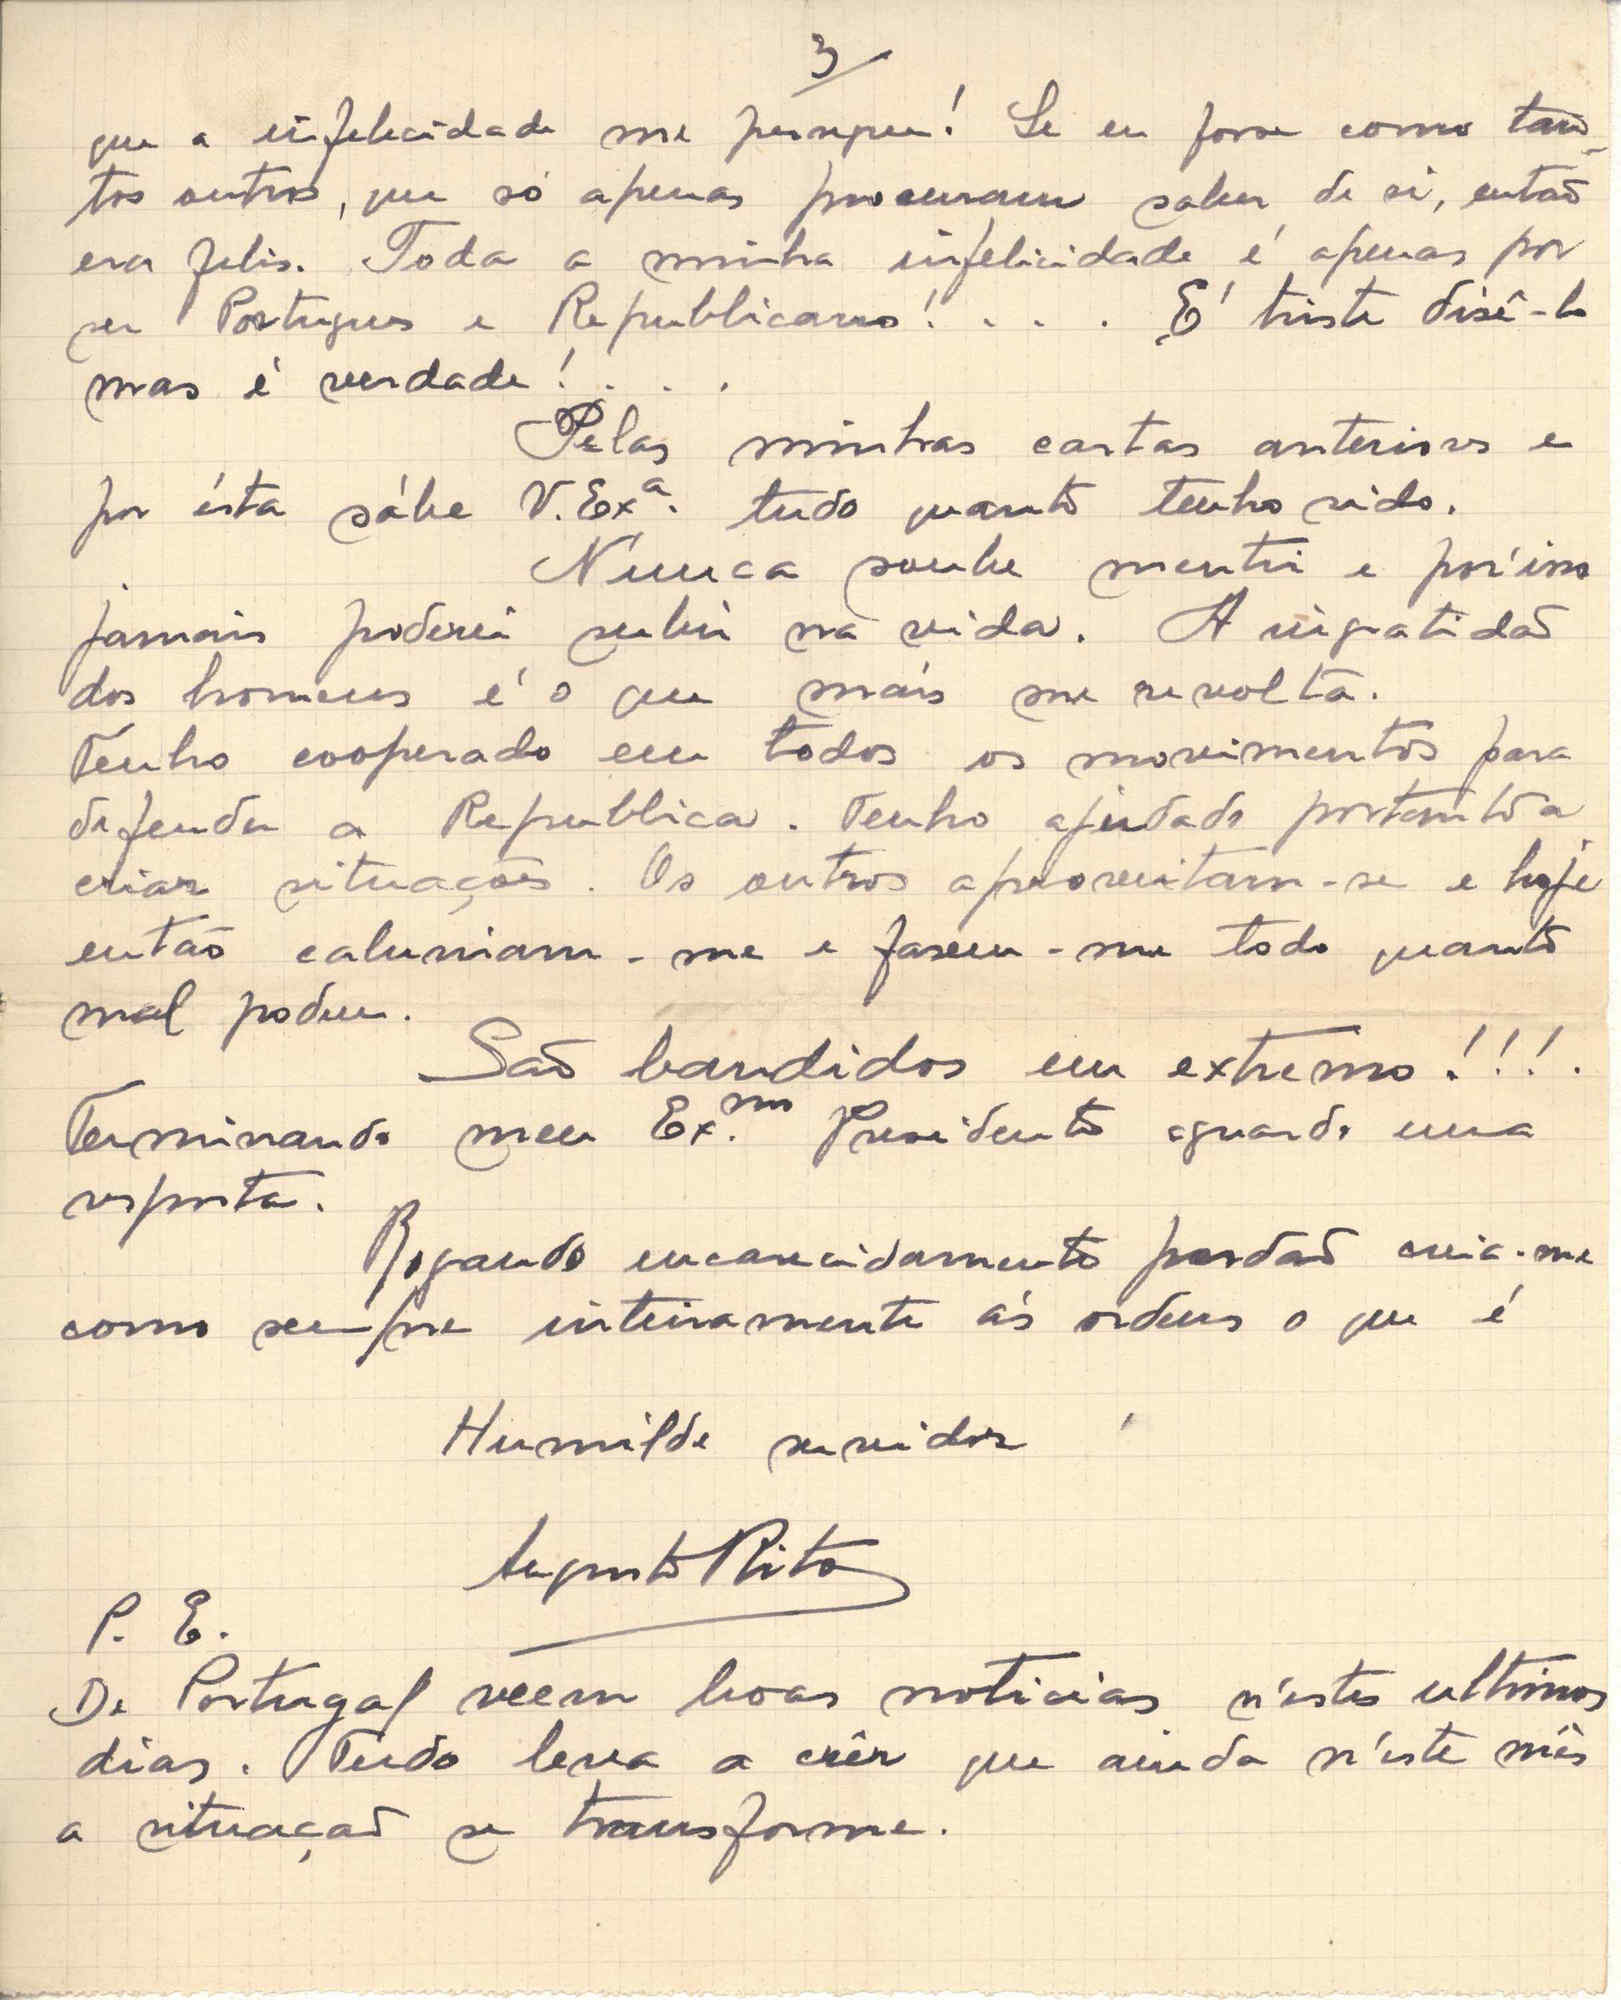 3/
que a infelicidade me persegue! Se eu fosse como tan-
tos outros, que só apenas procuram saber de si, então
era felis. Toda a minha infelicidade é apenas por
ser Portugues e Republicano! . . . . É triste disê-lo
mas é verdade! . . . .
Pelas minhas cartas anteriores e
por ésta sábe V. Exª. tudo quanto tenho sido.
Nunca soube mentir e por isso
jamais poderei subir na vida. A ingratidão
dos homens é o que mais me revolta.
Tenho cooperado em todos os movimentos para
defender a Republica. Tenho ajudado portanto a
criar situações. Os outros aproveitam-se e hoje
então caluniam-me e fasem-me todo quanto
mal podem.
São bandidos em extremo!!!.
Terminando meu Ex.mo Presidente aguardo uma
resposta.
Rogando encarecidamente perdão creia-me
como sempre inteiramente ás ordens o que é
Humilde servidor
Augusto Rito
P. E.
De Portugal vêem boas noticias n'estes ultimos
dias. Tudo leva a crêr que ainda n'este mês
a situação se transforme.